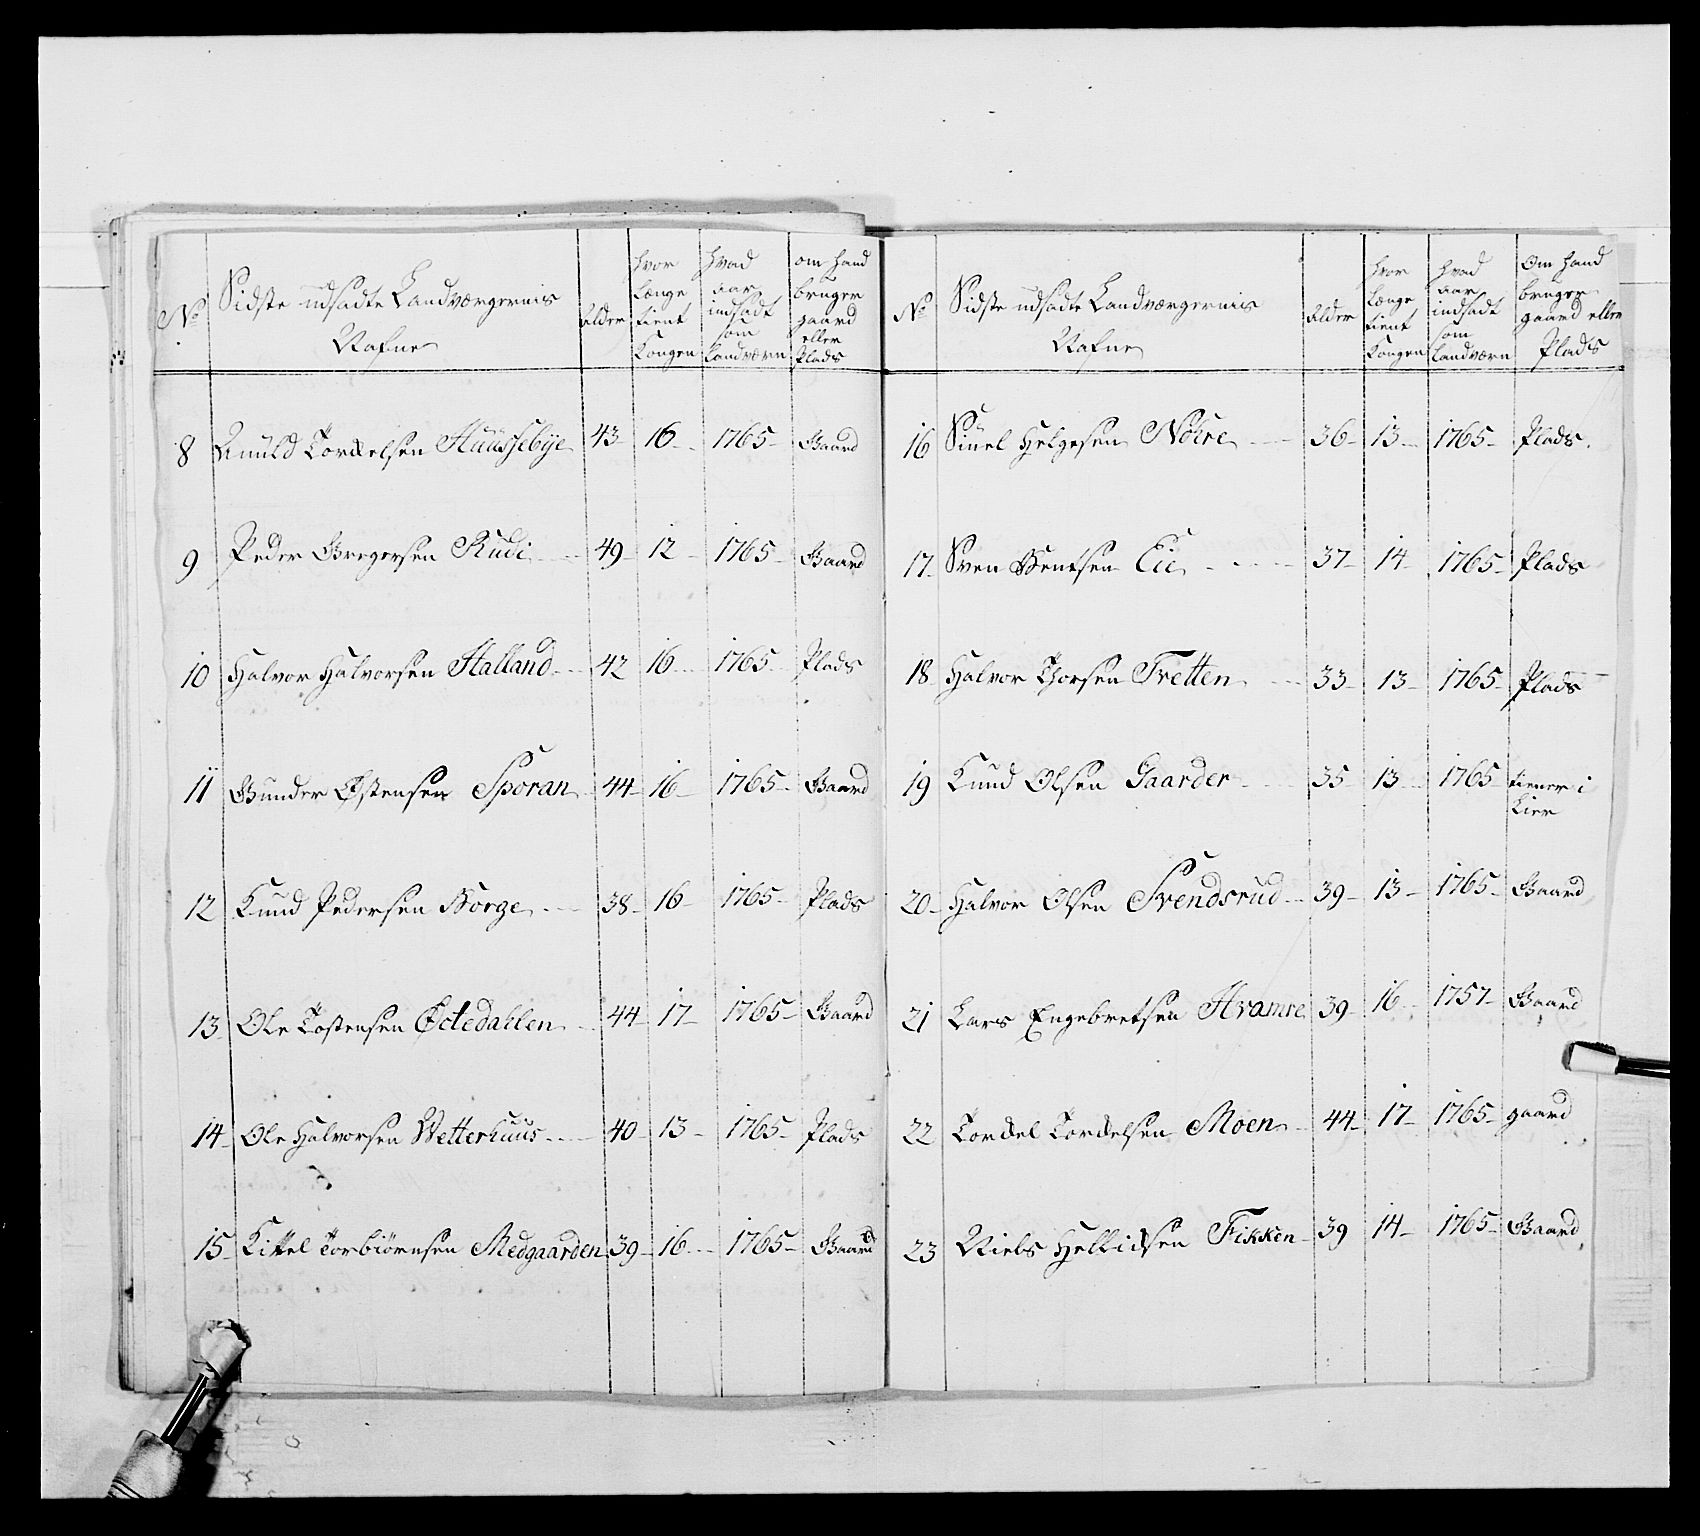 No
Sidste udsadte Landværgernis
Nafne
Alder
hvor
længe
tient
Kongen
hvad
aar
indsadt
som
Landværn
om hand
bruger
gaard
eller
Plads
8 Amúld Tordelsen Húússebÿe 43 16 1765 Gaard
9 Peder Gregersen Rudi 49 12 1765 Gaard
10 Halvor Halvorsen Halland 42 16 1765 Plads
11 Gunder Østensen Sporan 44 16 1765 Gaard
12 Knud Pedersen Borge 38 16 1765 Plads
13 Ole Tostensen Östedahlen 44 17 1765 Gaard
14 Ole Halvorsen Wetterhuus 40 13 1765 Plads
15 Kittel Torbiörnsen Medgaarden 39 16 1765 Gaard
No
Sidste udsadte Landværgernis
Nafne
Alder
hvor
længe
tient
Kongen
hvad
aar
indsadt
som
Landværn
Om hand
bruger
gaard eller
Plads
16 Siuel Helgesen Nöhre 36 13 1765 Plads
17 Sven Bentsen Eie 37 14 1765 Plads
18 Halvor Thorsen Tretten 33 13 1765 Plads
19 Knud Olsen Gaarder 35 13 1765 tiener i
Lier
20 Halvor Olsen Svendsrud 39 13 1765 Gaard
21 Lars Engebretsen Hramre 39 16 1757 Gaard
22 Tordel Tordelsen Moen 44 17 1765 gaard
23 Niels Hellicksen Fikken 39 14 1765 Gaard